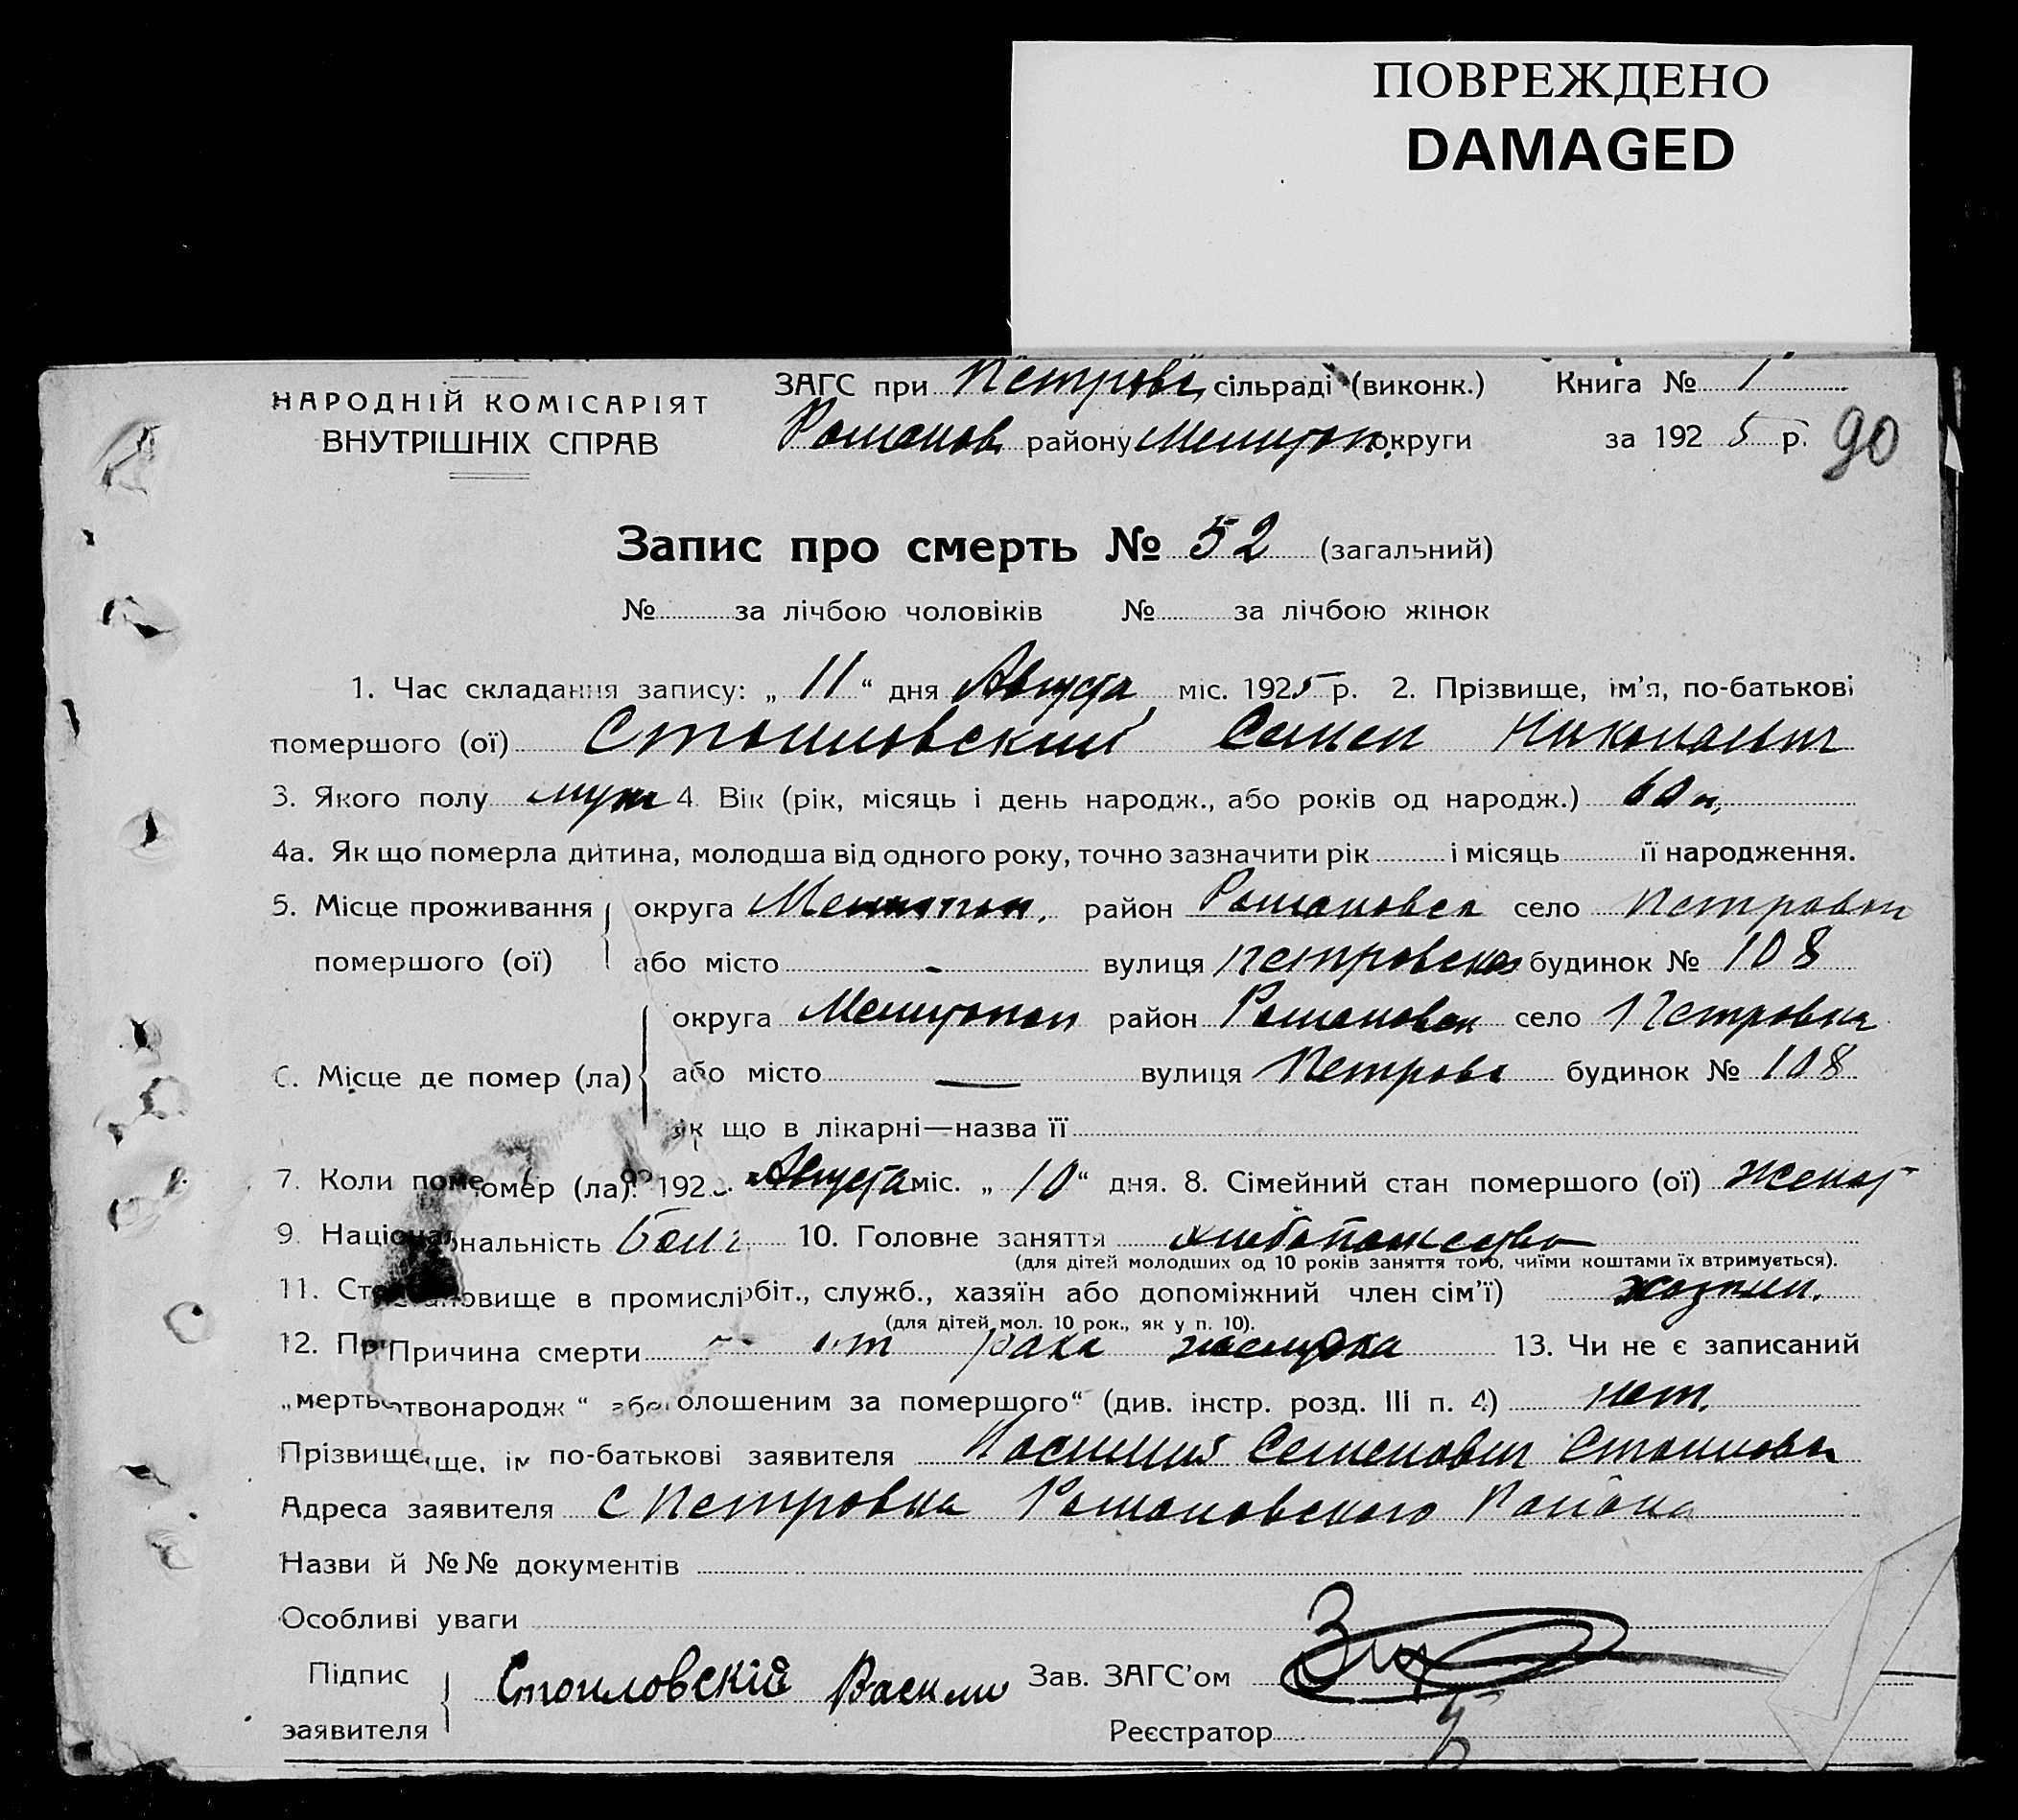 ПОВРЕЖДЕНО
DAMAGED
НАРОДНІЙ КОМІСАРІЯТ
ВНУТРІШНІХ СПРАВ
ЗАГС при Петровс, сільраді (виконк.) Книга № 1
Романов. району Мелитоп. округи за 1925 р. 90
Запис про смерть № 52 (загальний)
№ за лічбою чоловіків № за лічбою жінок
1. Час складання запису: „ 11 “ дня Августа міс. 1925 р. 2. Прізвище, ім’я, по-батькові
помершого (ої) Стоиловский Семен Николаевич
3. Якого полу муж 4. Вік (рік, місяць і день народж., або років од народж.) 60 л,
4а. Як що померла дитина, молодша від одного року, точно зазначити рік і місяць її народження.
5. Місце проживання округа Мелитоп. район Романовск село Петровка
помершого (ої) або місто - вулиця Петровская будинок № 108
округа Мелитопол район Романовск село Петровка
6. Місце де помер (ла) або місто — вулиця Петровс будинок № 108
як що в лікарні—назва її
7. Коли поме омер (ла) 192 Августа міс. „ 10 “ дня. 8. Сімейний стан помершого (ої) женат
9. Націонал ональність Болг. 10. Головне заняття хлебопашество
(для дітей молодших од 10 років заняття того, чиїми коштами їх втримується).
11. Ст ановище в промислі обіт., служб., хазяїн або допоміжний член сім’ї) хозяин.
(для дітей мол. 10 рок., як у п. 10).
12. Пр Причина смерти от рака желудка 13. Чи не є записаний
„мерть отвонародж “ або олошеним за помершого“ (див. інстр. розд. III п. 4) нет.
Прізвище, ще, ім по-батькові заявителя Василий Семенович Стоиловск
Адреса заявителя с Петровка Романовского Района
Назви й №№ документів
Особливі уваги
Підпис
заявителя Стоиловскій Василий Зав. ЗАГС’ом
Реєстратор